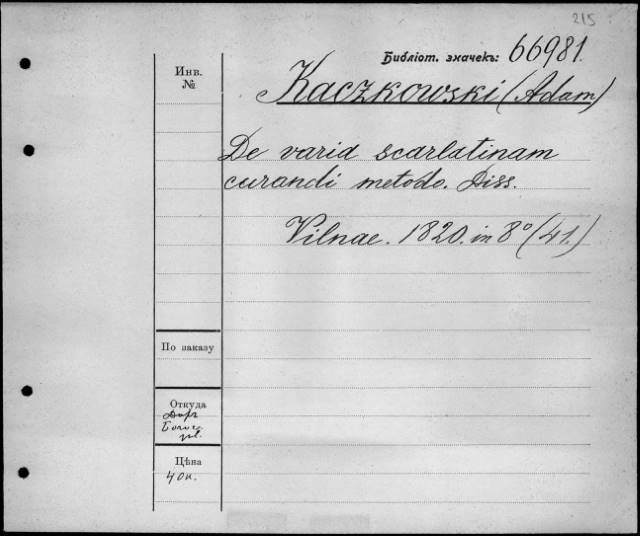 215
Библіот. значекъ: 66981.
Инв.
№
Kaczkowski (Adam)
De varia scarlatinam
curandi metodo. Diss.
Vilnae. 1820. in 8º (41.)
По заказу
Откуда
Цѣна
40к.